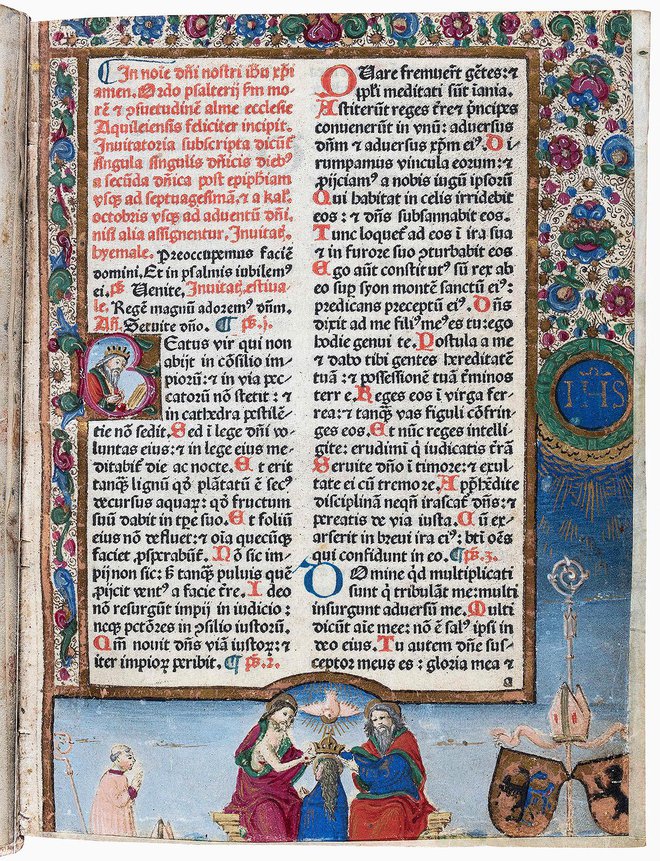 In noīe dñi nostri ihũ xp̄i
amen. Ordo psalterij ẜm mo-
rē ⁊ ꝯsuetudinē alme ecclesie
Aquileiensis feliciter incipit.
Inuitatoria subscripta dicūt᷑
singula singulis dñicis dieb⁹
a secūda dñica post epiph̄iam
vsq̃ ad septuagesimā, ⁊ a kal̃.
octobris vsq̃ ad aduentū dñi,
nisi alia assignentur. Inuitat̃.
hyemale. Preoccupemus faciē
domini, Et in psalmis iubilem⁹
ei. p̃s Uenite, Inuitat̃. estiua-
le. Regē magnū adorem⁹ dñm.
Añ. Seruite dño. p̃s. j.
Beatus vir qui non
abijt in cōsilio im-
piorū: ⁊ in via pec-
catorū nō stetit: ⁊
in cathedra pestilē-
tie nō sedit. Sed ī lege dñi vo-
luntas eius: ⁊ in lege eius me-
ditabit᷑ die ac nocte. Et erit
tanq̃ lignū qd̃ plātatū ē sec⁹
decursus aquaꝝ: qd̃ fructum
suū dabit in tp̄e suo. Et foliū
eius nō defluet: ⁊ oīa quecūq̃
faciet ꝓsperabūt᷑. Nō sic im-
pij non sic: s̃ tanq̃ puluis quē
ꝓijcit vent⁹ a facie t̃re. Ideo
nō resurgūt impij in iudicio:
neq̃ pctōres in ꝯsilio iustorū.
Qm̃ nouit dñs viā iustoꝝ: ⁊
iter impioꝝ peribit. p̃s. 2.
Quare fremuer̄t gētes: ⁊
pp̄li meditati sūt īania.
Astiterūt reges t̃re ⁊ pͥncipes
conuenerūt in vnū: aduersus
dñm ⁊ aduersus xp̄m ei⁹. Di-
rumpamus vincula eorum: ⁊
ꝓijciam⁹ a nobis iugū ipsorū
Qui habitat in celis irridebit
eos: ⁊ dñs subsannabit eos.
Tunc loquet᷑ ad eos ī ira sua
⁊ in furore suo ꝯturbabit eos
Ego aūt constitut⁹ sū rex ab
eo suꝑ syon montē sanctū ei⁹:
predicans preceptū ei⁹. Dñs
dixit ad me fili⁹ me⁹ es tu: ego
hodie genui te. Postula a me
⁊ dabo tibi gentes hereditatē
tuā: ⁊ possessionē tuā t̃minos
terre. Reges eos ī virga fer-
rea: ⁊ tanq̃ vas figuli cōfrin-
ges eos. Et nūc reges intelli-
gite: erudimī q̇ iudicatis t̃rā
Seruite dño ī timore: ⁊ exul-
tate ei cū tremore. Apprehēdite
disciplinā neqñ irascat᷑ dñs: ⁊
pereatis de via iusta. Cū ex-
arserit in breui ira ei⁹: bt̄i oēs
qui confidunt in eo. p̃s. 3.
Domine qd̃ multiplicati
sunt q̇ tribulāt me: multi
insurgunt aduersū me. Multi
dicūt aīe mee: nō ē sal⁹ ipsi in
deo eius. Tu autem dñe sus-
ceptor meus es: gloria mea ⁊
a
IHS